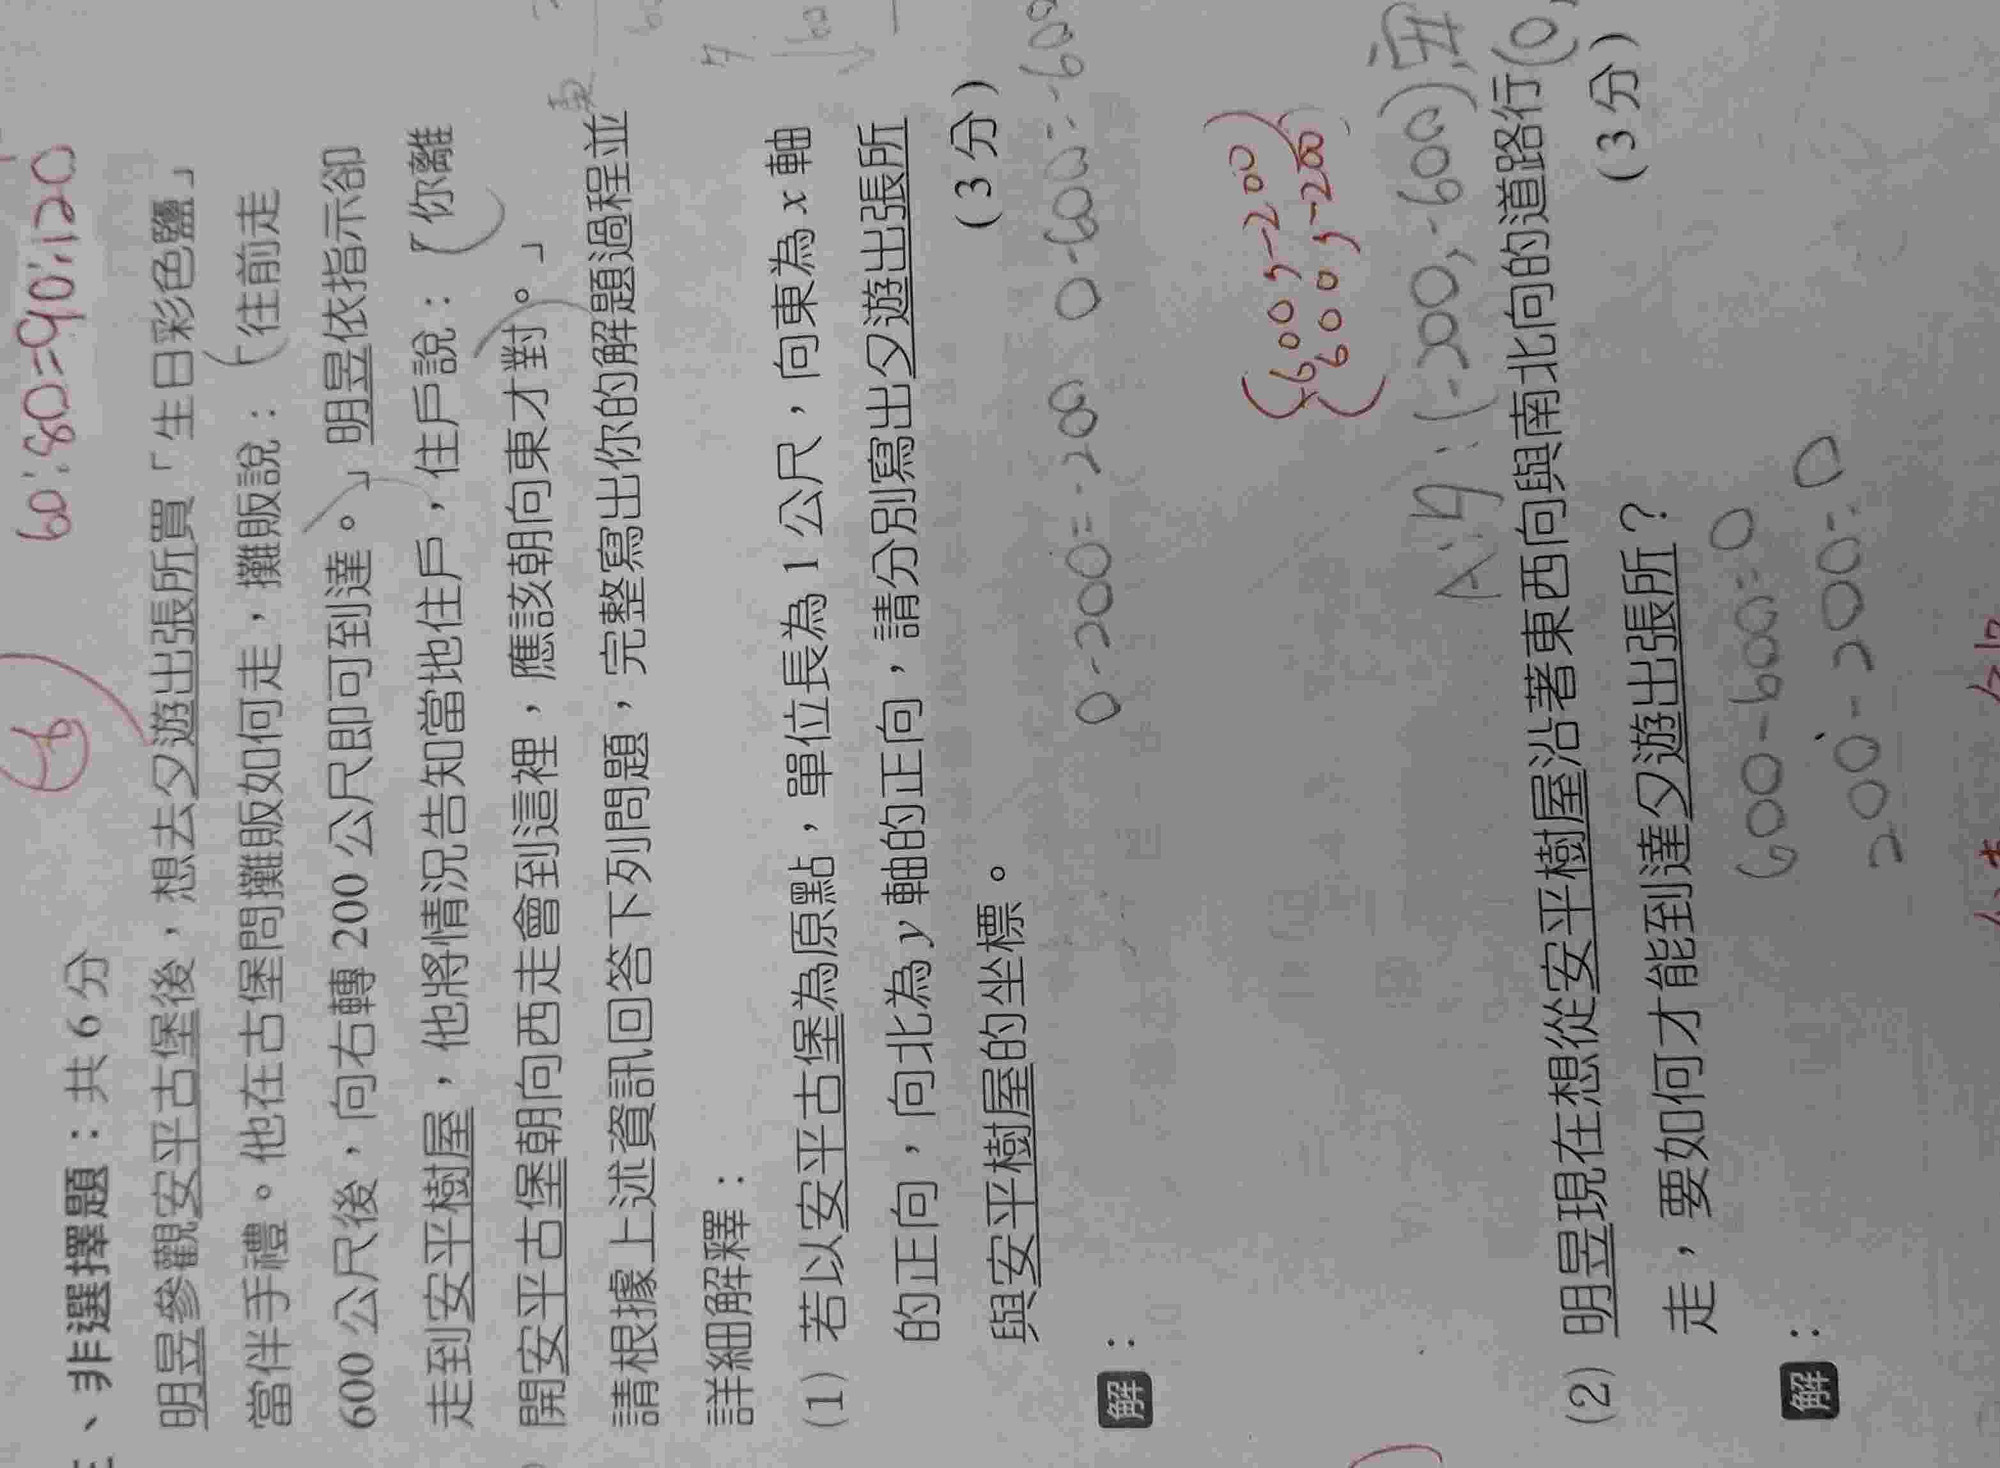 60:80=90:120
三、非選擇題：共 6 分
-6
明昱參觀安平古堡後，想去夕遊出張所買「生日彩色鹽」
當伴手禮。他在古堡問攤販如何走，攤販說：「往前走
600 公尺後，向右轉 200 公尺即可到達。」明昱依指示卻
走到安平樹屋，他將情況告知當地住戶，住戶說：「你離
開安平古堡朝向西走會到這裡，應該朝向東才對。」
請根據上述資訊回答下列問題，完整寫出你的解題過程並
詳細解釋：
(1) 若以安平古堡為原點，單位長為 1 公尺，向東為 x 軸
的正向，向北為 y 軸的正向，請分別寫出夕遊出張所
與安平樹屋的坐標。 (3 分)
解：
0-200=-200 0-600=-600
(600,-200)
(600,-200)
A:夕:(-200,-600),安(0,
(2) 明昱現在想從安平樹屋沿著東西向與南北向的道路行
走，要如何才能到達夕遊出張所？ (3 分)
解：
600-600=0
200-200=0